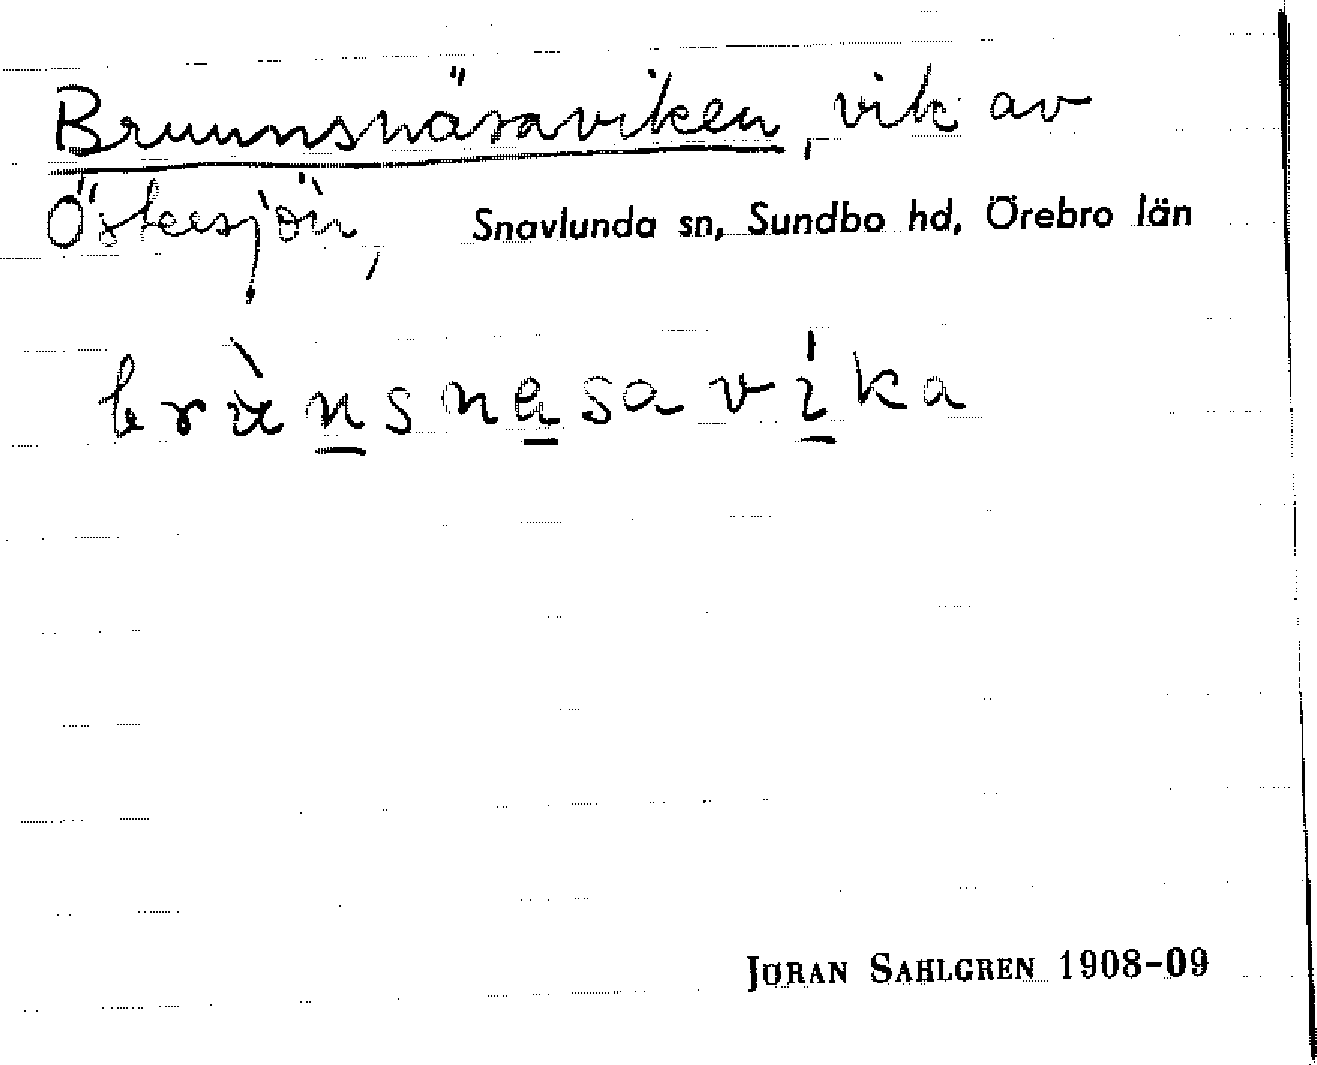 Brunnsnäsaviken, vik av
Östersjön, Snavlunda sn, Sundbo hd, Örebro län
brùnsnesavíka
JÖRAN SAHLGREN 1908-09